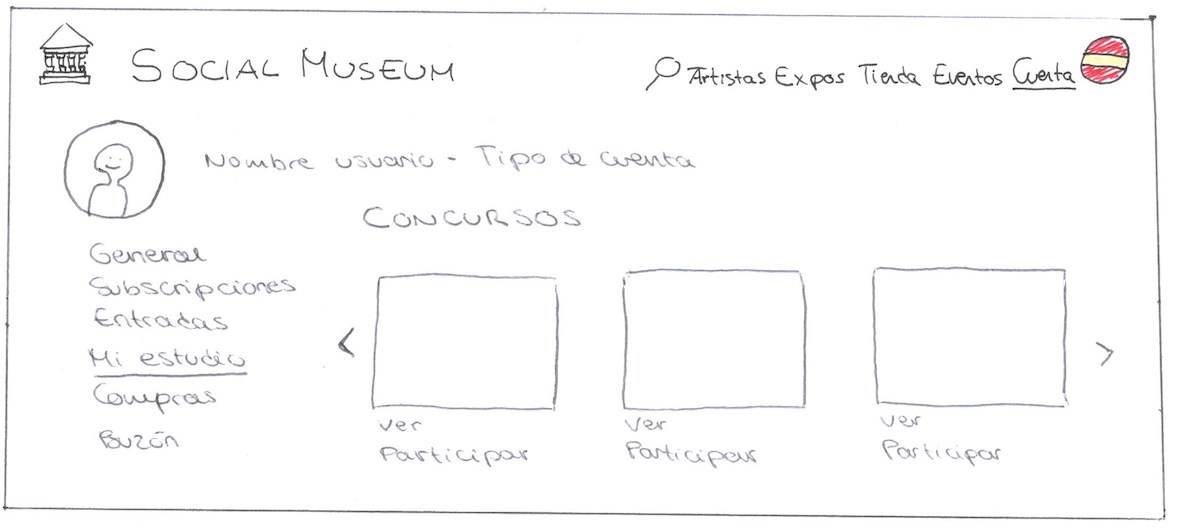 SOCIAL MUSEUM
Artistas Expos Tienda Eventos Cuenta
Nombre usuario - Tipo de cuenta
CONCURSOS
General
Subscripciones
Entradas
Mi estudio
Compras
Buzón
<
>
ver
Participar
ver
Participar
ver
Participar